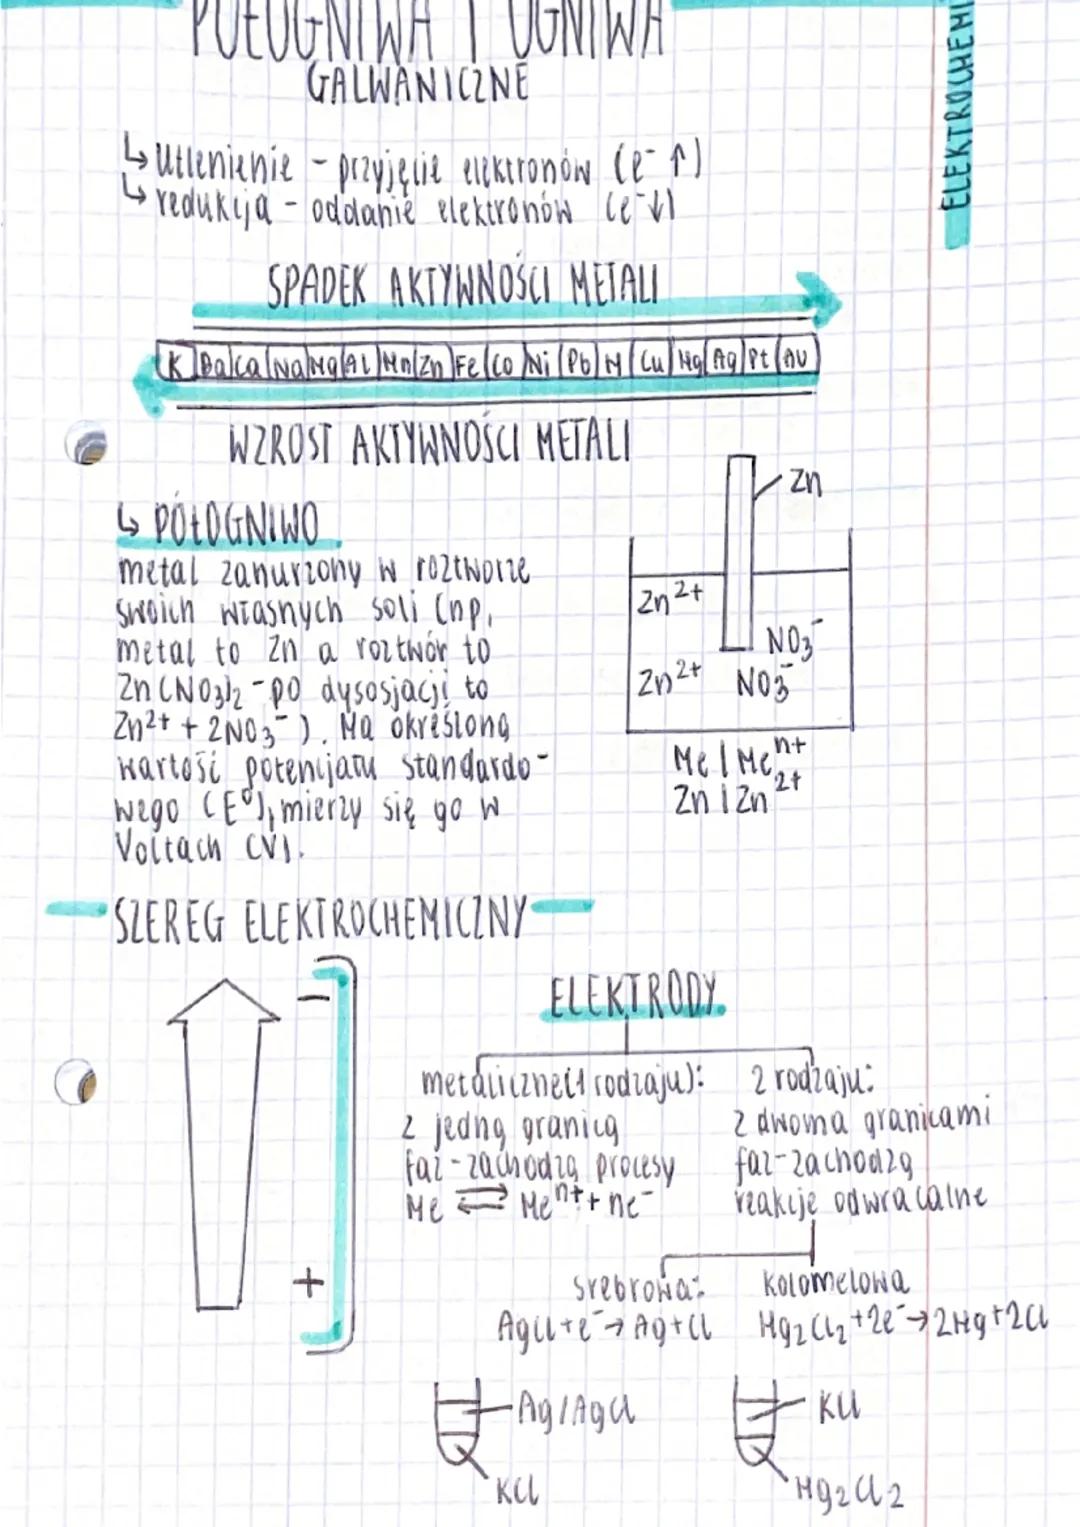 PÓŁOGNIWA I OGNIWA
GALWANICZNE
ELEKTROCHEMI
↳ utlenienie - przyjęcie elektronów (e⁻ ↑)
↳ redukcja - oddanie elektronów (e⁻↓)
SPADEK AKTYWNOŚCI METALI
K Ba Ca Na Mg Al Mn Zn Fe Co Ni Pb H Cu Hg Ag Pt Au
WZROST AKTYWNOŚCI METALI
↳ PÓŁOGNIWO
metal zanurzony w roztworze
swoich własnych soli (np.
metal to Zn a roztwór to
Zn(NO₃)₂ - po dysosjacji to
Zn²⁺ + 2NO₃⁻). Ma określoną
wartość potencjału standardo-
wego (E⁰), mierzy się go w
Voltach (V).
Zn
Zn²⁺
NO₃⁻
Zn²⁺ NO₃⁻
Me | Meⁿ⁺
Zn | Zn²⁺
SZEREG ELEKTROCHEMICZNY
−
+
ELEKTRODY
metaliczne(1 rodzaju):
z jedną granicą
faz - zachodzą procesy
Me ⇌ Meⁿ⁺ + ne⁻
2 rodzaju:
z dwoma granicami
faz - zachodzą
reakcje odwracalne
srebrowa:
AgCl + e⁻ → Ag + Cl
kolomelowa
Hg₂Cl₂ + 2e⁻ → 2Hg + 2Cl
Ag/AgCl
KCl
KCl
Hg₂Cl₂